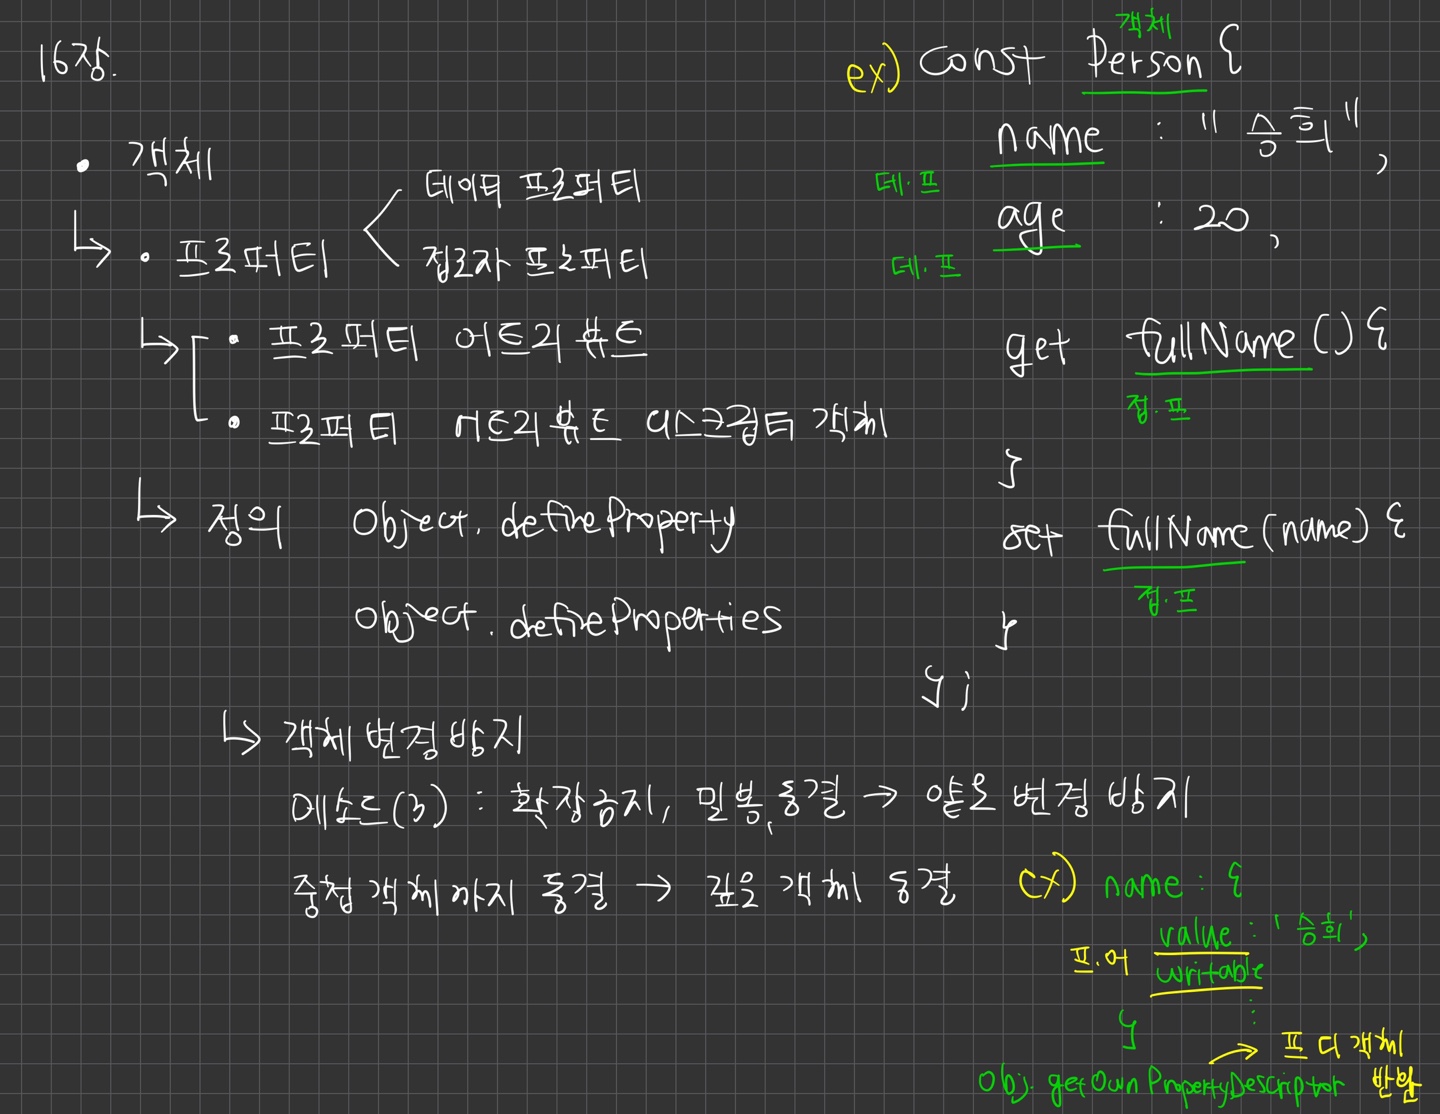 16장.
• 객체
↳ • 프로퍼티
데이터 프로퍼티
접근자 프로퍼티
↳ • 프로퍼티 어트리뷰트
• 프로퍼티 어트리뷰트 디스크립터 객체
↳ 정의 Object.defineProperty
Object.defineProperties
↳ 객체 변경 방지
메소드(3) : 확장금지, 밀봉, 동결 → 얕은 변경 방지
중첩 객체까지 동결 → 깊은 객체 동결
객체
ex) const Person {
name : "승희",
데.프
age : 20,
데.프
get fullName () {
접.프
}
set fullName (name) {
접.프
}
};
ex) name : {
value : '승희',
프.어
writable
:
}
→ 프 디 객체
Obj. getOwnPropertyDescriptor 반환